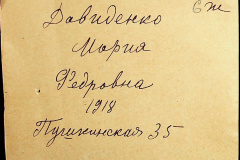 6ж
Давиденко
Мария
Федровна
1918
Пушкинская 35